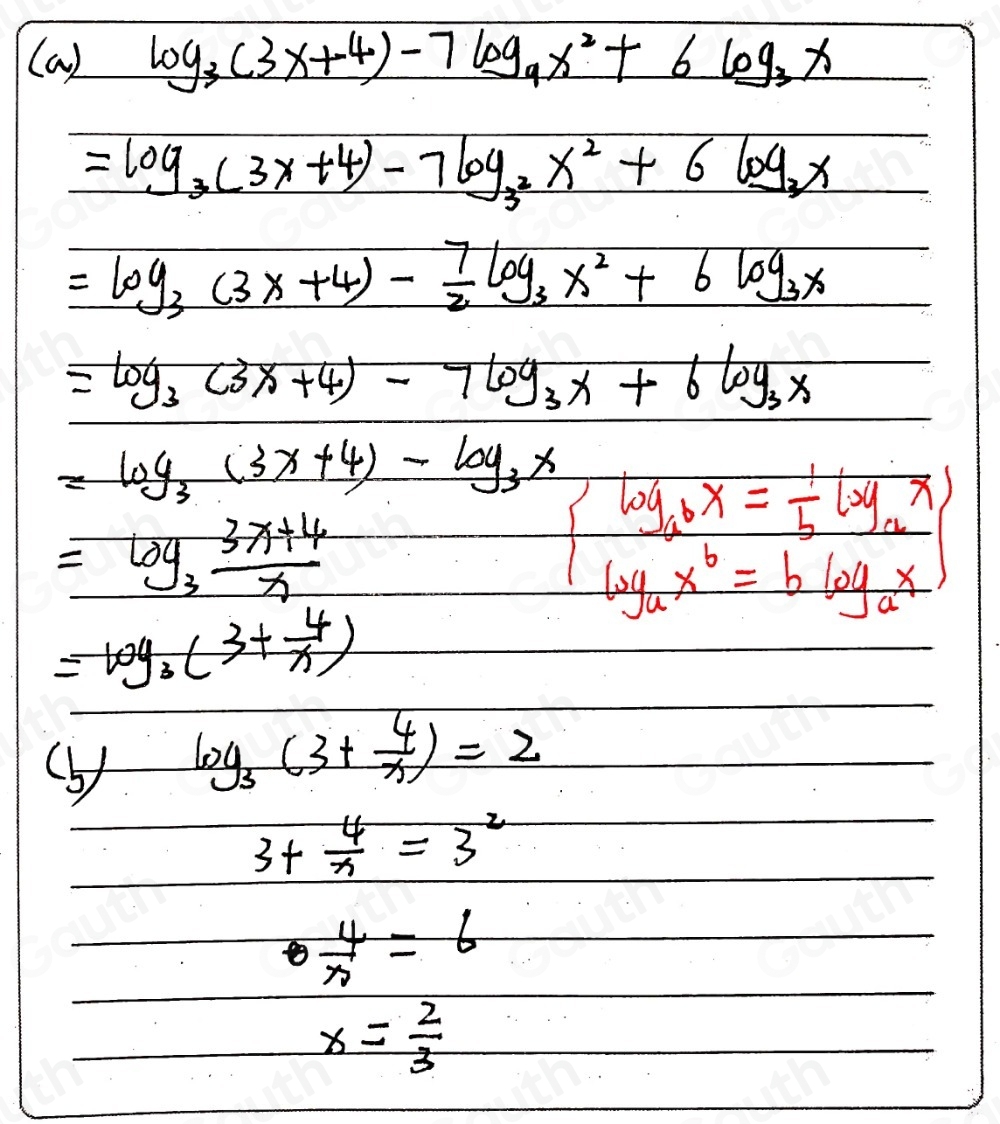 (a) log₃(3x+4) - 7 log₉x² + 6 log₃x
= log₃(3x+4) - 7 log_{3²} x² + 6 log₃x
= log₃ (3x+4) - \frac{7}{2} log₃ x² + 6 log₃x
= log₃ (3x+4) - 7 log₃x + 6 log₃x
= log₃ (3x+4) - log₃x
= log₃ \frac{3x+4}{x}
= log₃(3+\frac{4}{x})
{ log_{a^b} x = \frac{1}{b} log_a x }
{ log_a x^b = b log_a x }
(b) log₃ (3+\frac{4}{x}) = 2
3+\frac{4}{x} = 3²
\frac{4}{x} = 6
x = \frac{2}{3}
Gauth